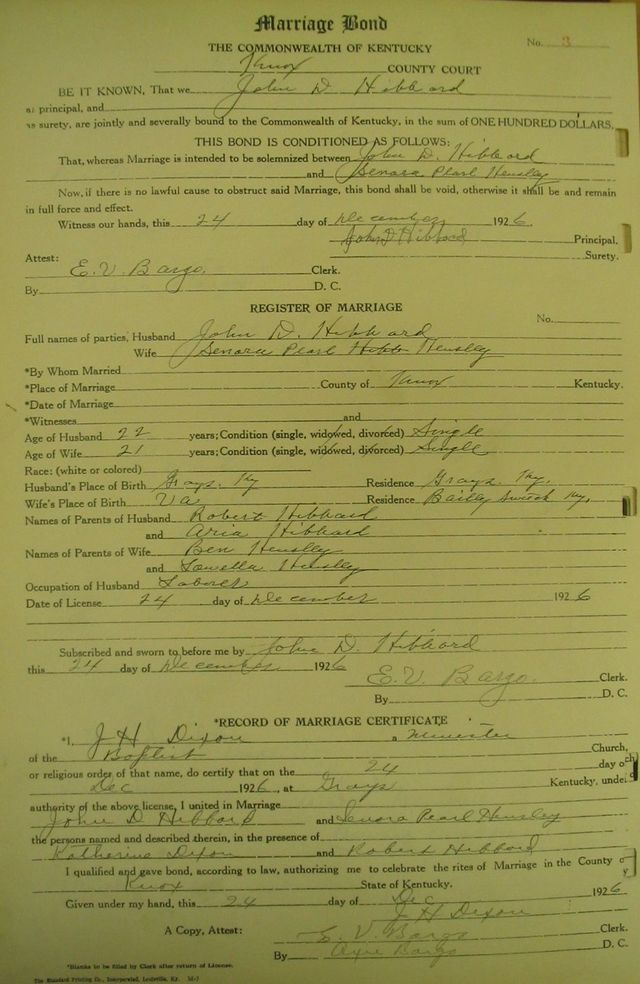 Marriage Bond
THE COMMONWEALTH OF KENTUCKY
No. 3
Knox COUNTY COURT
BE IT KNOWN, That we John D. Hibbard
as principal, and
as surety, are jointly and severally bound to the Commonwealth of Kentucky, in the sum of ONE HUNDRED DOLLARS.
THIS BOND IS CONDITIONED AS FOLLOWS:
That, whereas Marriage is intended to be solemnized between John D. Hibbard
and Senora Pearl Hensley
Now, if there is no lawful cause to obstruct said Marriage, this bond shall be void, otherwise it shall be and remain
in full force and effect.
Witness our hands, this 24 day of December 1926.
John D Hibbard Principal,
Surety.
Attest:
E. V. Bargo. Clerk.
By D. C.
REGISTER OF MARRIAGE
No.
Full names of parties, Husband John D. Hibbard
Wife Senora Pearl Hensley
*By Whom Married
*Place of Marriage County of Knox Kentucky.
*Date of Marriage
*Witnesses and
Age of Husband 22 years; Condition (single, widowed, divorced) Single
Age of Wife 21 years; Condition (single, widowed, divorced) Single
Race: (white or colored)
Husband's Place of Birth Grays, Ky Residence Grays Ky.
Wife's Place of Birth Va Residence Bailey Switch Ky.
Names of Parents of Husband Robert Hibbard
and Aria Hibbard
Names of Parents of Wife Ben Hensley
and Louella Hensley
Occupation of Husband Laborer
Date of License 24 day of December 1926
Subscribed and sworn to before me by John D. Hibbard
this 24 day of December 1926
E. V. Bargo. Clerk.
By D. C.
*RECORD OF MARRIAGE CERTIFICATE
*I, J H Dixon a Minister
of the Baptist Church,
or religious order of that name, do certify that on the 24 day of
Dec 1926, at Grays Kentucky, under
authority of the above license, I united in Marriage
John D Hibbard and Senora Pearl Hensley
the persons named and described therein, in the presence of
Katherine Dixon and Robert Hibbard
I qualified and gave bond, according to law, authorizing me to celebrate the rites of Marriage in the County of
Knox State of Kentucky.
Given under my hand, this 24 day of Dec 1926
J H Dixon
A Copy, Attest: E. V. Bargo Clerk.
By Bargo D. C.
*Blanks to be filled by Clerk after return of License.
The Standard Printing Co., Incorporated, Louisville, Ky.